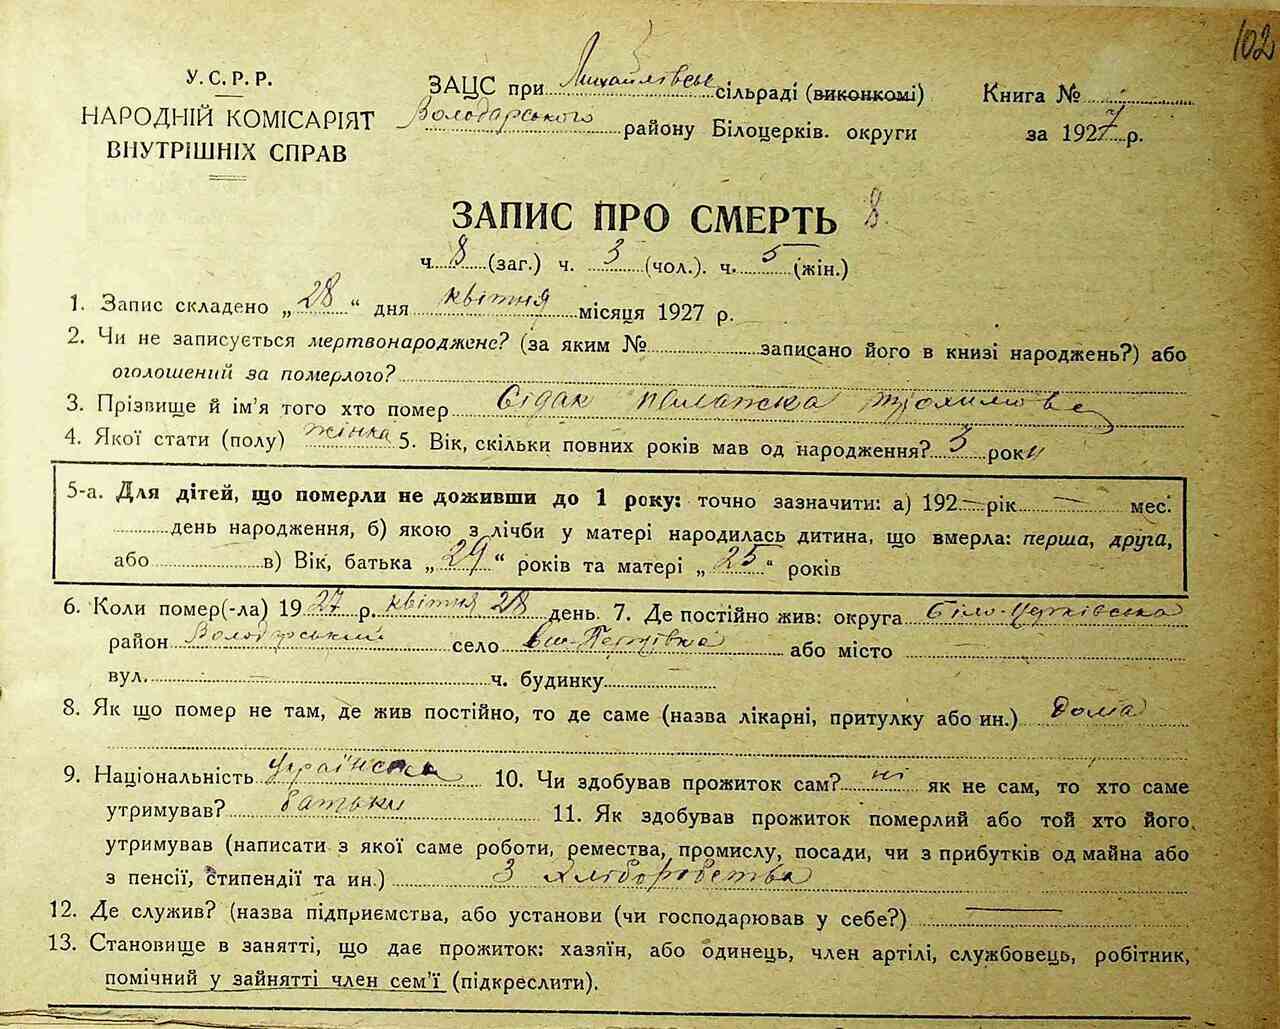 102
У.С.Р.Р.
НАРОДНІЙ КОМІСАРІЯТ
ВНУТРІШНІХ СПРАВ
ЗАЦС при Михайлівськ сільраді (виконкомі)
Володарського району Білоцерків. округи
Книга №
за 1927 р.
ЗАПИС ПРО СМЕРТЬ 8
ч. 8 (заг.) ч. 3 (чол.). ч. 5 (жін.)
1. Запис складено „28“ дня квітня місяця 1927 р.
2. Чи не записується мертвонароджене? (за яким № записано його в книзі народжень?) або
оголошений за померлого?
3. Прізвище й ім'я того хто помер Сідак
4. Якої стати (полу) жінка 5. Вік, скільки повних років мав од народження? 3 роки
5-а. Для дітей, що померли не доживши до 1 року: точно зазначити: а) 192 — рік — мес.
день народження, б) якою з лічби у матері народилась дитина, що вмерла: перша, друга,
або в) Вік, батька „29“ років та матері „25“ років
6. Коли помер(-ла) 1927 р. квітня 28 день. 7. Де постійно жив: округа Біло-Церківська
район Володарський село Петрівка або місто
вул. ч. будинку
8. Як що помер не там, де жив постійно, то де саме (назва лікарні, притулку або ин.) дома
9. Національність українська 10. Чи здобував прожиток сам? ні як не сам, то хто саме
утримував? батьки 11. Як здобував прожиток померлий або той хто його
утримував (написати з якої саме роботи, ремества, промислу, посади, чи з прибутків од майна або
з пенсії, стипендії та ин.) З хліборобства
12. Де служив? (назва підприємства, або установи (чи господарював у себе?) —
13. Становище в занятті, що дає прожиток: хазяїн, або одинець, член артілі, службовець, робітник,
помічний у зайнятті член сем'ї (підкреслити).